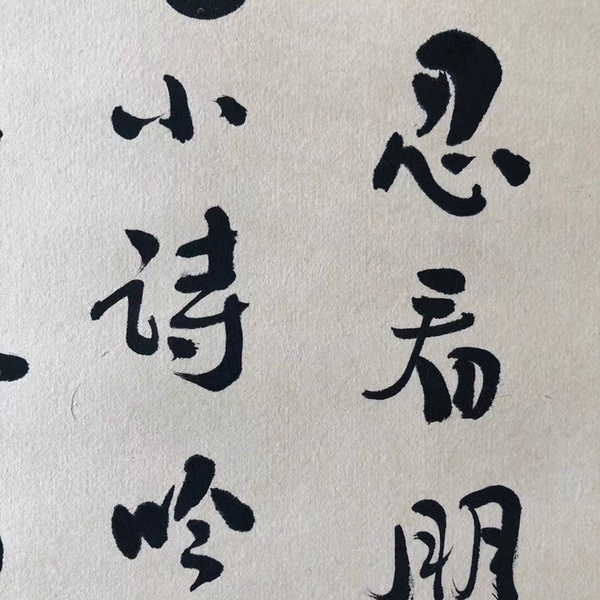 忍看朋
小诗吟